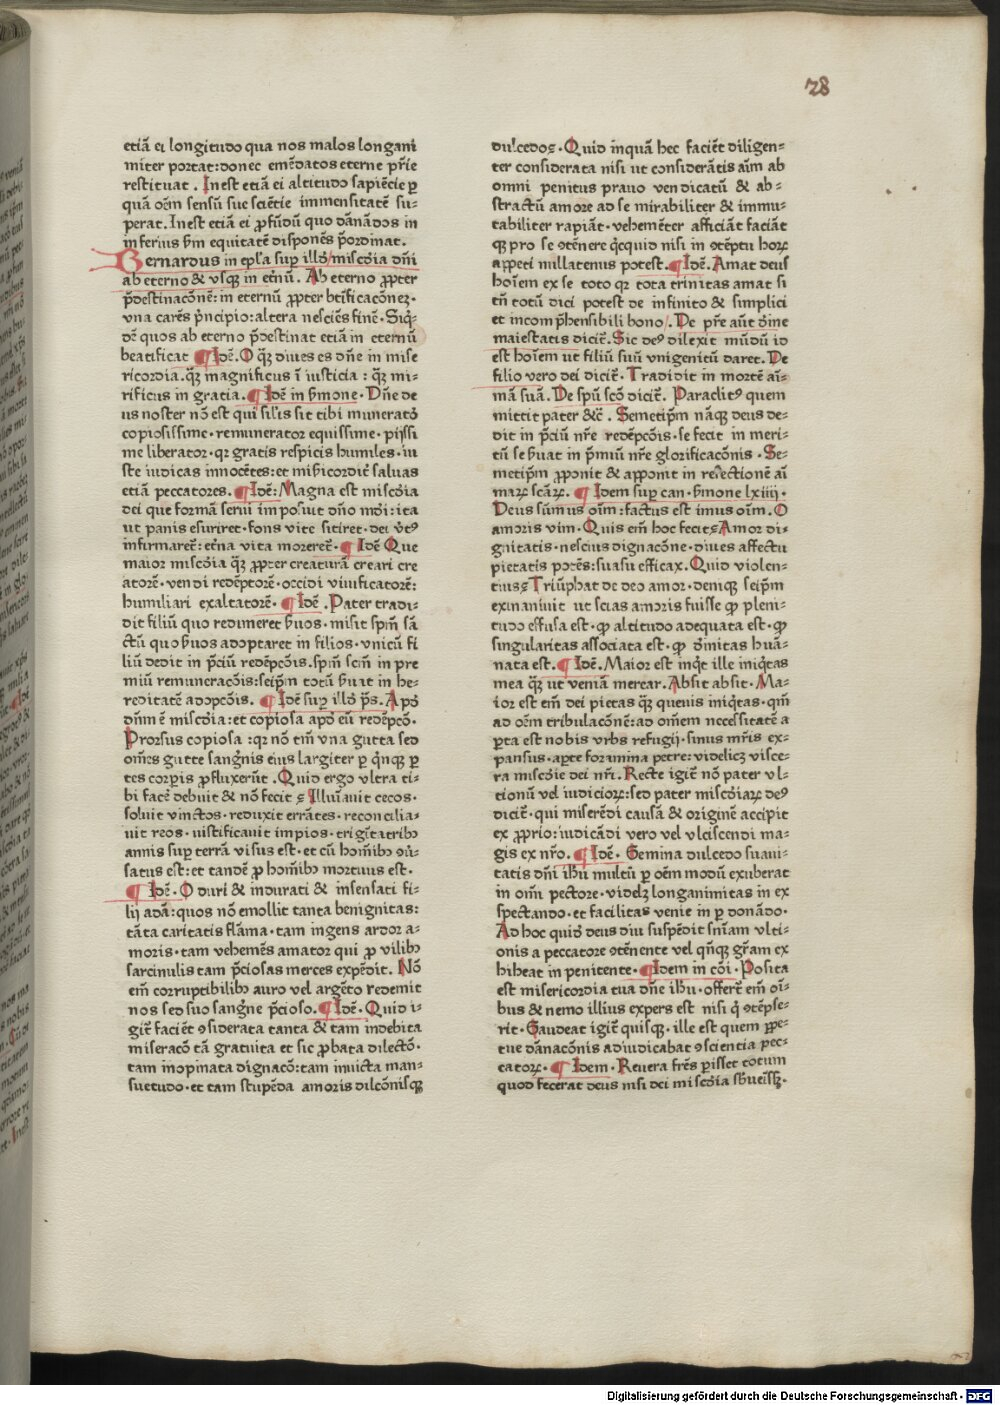 28
etiã ei longitudo qua nos malos longani
miter portat:donec emẽdatos eterne pr̃ie
restituat . Inest etiã ei altitudo sapiẽcie ꝑ
quã oẽm sensũ sue sciẽtie immensitatẽ su-
perat. Inest etiã ei ꝓfũdũ quo dãnãdos in
inferius ẜm equitatẽ disponẽs p̃ordinat.
Bernardus in epl̃a suꝑ illo᷑/misc̃dia dñi
ab eterno & vsqꝫ in etñũ. Ab eterno ꝓpter
p̃destinacõnẽ: in eternũ ꝓpter bt̃ificacõneꝫ·
vna carẽs p̃ncipio: altera nesciẽs finẽ · Siq᷑-
dẽ quos ab eterno p̃destinat etiã in eternũ
beatificat ¶ Idẽ. O qꝫ̃ diues es dñe in mise
ricordia. qꝫ̃ magnificus ĩ iusticia : qꝫ̃ mi-
rificus in gratia. ¶ Idẽ in ẜmone · Dñe de
us noster nõ est qui sil̃is sit tibi munerato᷑
copiosissime · remunerator equissime · pijssi
me liberator · qꝛ gratis respicis humiles · iu
ste iudicas innocẽtes: et mis̃icordit̃ saluas
etiã peccatores. ¶ Idẽ: Magna est misc̃dia
dei que formã serui imposuit dño mo᷑i: ita
ut panis esuriret · fons vite sitiret · dei v̾t᷒
infirmaret᷑: et̃na vita moreret᷑ · ¶ Idẽ Que
maior misc̃dia qꝫ̃ ꝓpter creaturã creari cre
atorẽ · vendi redẽptorẽ · occidi viuificatorẽ:
humiliari exaltatorẽ · ¶ Idẽ . Pater tradi-
dit filiũ quo redimeret ẜuos · misit sp̃m sã
ctũ quo ẜuos adoptaret in filios · vnicũ fi
liũ dedit in p̃ciũ redẽpcõis. sp̃m sc̃m in pre
miũ remuneracõis: seip̃m totũ ẜuat in he-
reditatẽ adopcõis. ¶ Idẽ suꝑ illo᷑ p̃s. Apo᷑
dñm ẽ misc̃dia: et copiosa apo᷑ eũ redẽpcõ.
Prorsus copiosa : qꝛ nõ tm̃ vna gutta sed
om̃es gutte sang̃nis eius largiter ꝑ q̃nqꝫ ꝑ
tes corpĩs ꝓfluxerũt . Quid ergo vltra ti-
bi facẽ debuit & nõ fecit ? Illuiãuit cecos ·
soluit vinctos · reduxit errãtes · reconcilia-
uit reos · iustificauit impios · trigĩtatribꝰ
annis suꝑ terrã visus est · et cũ homĩbꝰ ꝯu᷑-
satus est: et tandẽ ꝓ homĩbꝰ mortuus est ·
¶ Idẽ · O duri & indurati & insensati fi-
lij adã: quos nõ emollit tanta benignitas:
tãta caritatis flãma · tam ingens ardor a-
moris · tam vehemẽs amator qui ꝓ vilibꝰ
sarcinulis tam p̃ciosas merces expẽdit. Nõ
em̃ corruptibilibꝰ auro vel argẽto redemit
nos sed suo sang̃ne p̃cioso. ¶ Idẽ · Quid i-
git᷑ faciẽt ꝯsiderata tanta & tam indebita
miseracõ tã gratuita et sic ꝓbata dilectõ ·
tam inopinata dignacõ: tam inuicta man-
suetudo · et tam stupẽda amoris dulcõnisqꝫ
dulcedo? · Quid inquã hec faciẽt diligen-
ter considerata nisi ut considerãtis aĩm ab
omni penitus prauo vendicatũ & ab-
stractũ amore ad se mirabiliter & immu-
tabiliter rapiãt · vehemẽter afficiãt faciãt
qꝫ pro se ꝯtẽnere q̃cquid nisi in ꝯtẽptu hoꝝ
appeti nullatenus potest. ¶ Idẽ. Amat deus
hoĩem ex se toto qꝫ tota trinitas amat si
tñ totũ dici potest de infinito & simplici
et incomp̃hensibili bono /. De pr̃e aũt o᷑ine
maiestatis dicit᷑. Sic de᷒ dilexit mũdũ id
est hoĩem ut filiũ suũ vnigenitũ daret. De
filio vero dei dicit᷑ · Tradidit in mortẽ aĩ-
mã suã. De sp̃u sc̃o dicit᷑. Paraclit᷒ quem
mittit pater &c̃ . Semetip̃m nãqꝫ deus de-
dit in p̃ciũ nr̃e redẽpcõis · se fecit in meri-
tũ se ẜuat in p̃miũ nr̃e glorificacõnis . Se-
metip̃m ꝓponit & apponit in refectionẽ aĩ
maꝝ scãꝝ. ¶ Idem suꝑ can · ẜmone lxiiij ·
Deus sũmus oĩm: factus est imus oĩm. O
amoris vim · Quis em̃ hoc fecit? Amor di-
gnitatis · nescius dignacõne · diues affectu
pietatis potẽs: suasu efficax. Quid violen-
tius? Triũphat de deo amor · deniqꝫ seip̃m
exinaniuit ut scias amoris fuisse ꝙ pleni-
tudo effusa est · ꝙ altitudo adequata est · ꝙ
singularitas associata est · ꝙ o᷑initas huã-
nata est. ¶ Idẽ. Maior est inq̃t ille iniq̃tas
mea qꝫ̃ ut veniã merear. Absit absit · Ma-
ior est em̃ dei pietas qꝫ̃ queuis iniq̃tas · qm̃
ad oẽm tribulacõnẽ: ad om̃em necessitatẽ a
perta est nobis vrbs refugij · sinus mr̃is ex-
pansus · aperte foramina petre: videlicꝫ visce-
ra misc̃die dei nr̃i. Recte igit᷑ nõ pater vl-
tionũ vel iudicioꝝ: sed pater misc̃diaꝝ de᷒
dicit᷑ · qui miserẽdi causã & originẽ accipit
ex ꝓprio: iudicãdi vero vel vlciscendi ma-
gis ex nr̃o. ¶ Idẽ · Gemina dulcedo suaui-
tatis dñi ihũ multũ ꝑ oẽm modũ exuberat
in om̃i pectore · videlꝫ longanimitas in ex
spectando · et facilitas venie in ꝑdonãdo ·
Ad hoc quid᷑ deus diu suspẽdit sñiam vlti-
onis a peccatore ꝯtẽnente vel q̃nqꝫ gr̃am ex
hibeat in penitente · ¶ Idem in cõi · Posita
est misericordia tua dñe ihũ · offert᷑ em̃ oĩ-
bus & nemo illius expers est nisi q᷑ ꝯtẽpse-
rit · Gaudeat igit᷑ quisqꝫ · ille est quem ꝑpe-
tue dãnacõnis adiudicabat ꝯscientia pec-
catoꝝ · ¶ Idem · Reuera fr̃es ꝑisset totum
quod fecerat deus nisi dei misc̃dia ẜbueĩssꝫ ·
Digitalisierung gefördert durch die Deutsche Forschungsgemeinschaft - DFG